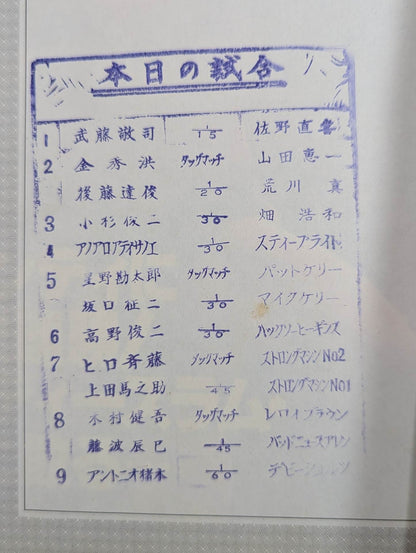 本日の試合
1 武藤敬司 1/15 佐野直喜
2 金秀洪 タッグマッチ 山田恵一
後藤達俊 1/20 荒川真
3 小杉俊二 1/30 畑浩和
4 アノアロアティサノエ 1/30 スティーブライト
5 星野勘太郎 タッグマッチ パットケリー
坂口征二 1/30 マイクケリー
6 高野俊二 1/30 ハックソーヒーギンズ
7 ヒロ斉藤 タッグマッチ ストロングマシンNo2
上田馬之助 45 ストロングマシンNo1
8 木村健吾 タッグマッチ レロイブラウン
藤波辰巳 1/45 バッドニュースアレン
9 アントニオ猪木 1/60